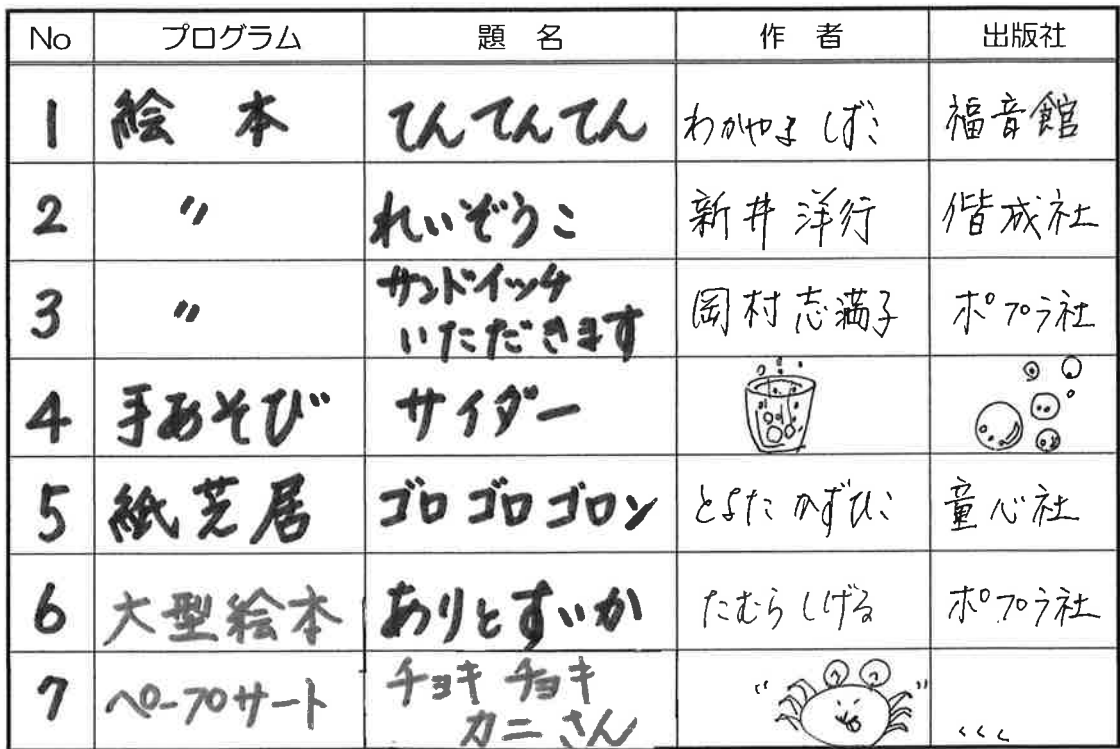 No プログラム 題 名 作 者 出版社
1 絵 本 てんてんてん わかやま しずこ 福音館
2 〃 れいぞうこ 新井 洋行 偕成社
3 〃 サンドイッチ いただきます 岡村 志満子 ポプラ社
4 手あそび サイダー
5 紙芝居 ゴロ ゴロ ゴロン とよた かずひこ 童心社
6 大型絵本 ありとすいか たむら しげる ポプラ社
7 ペープサート チョキ チョキ カニさん